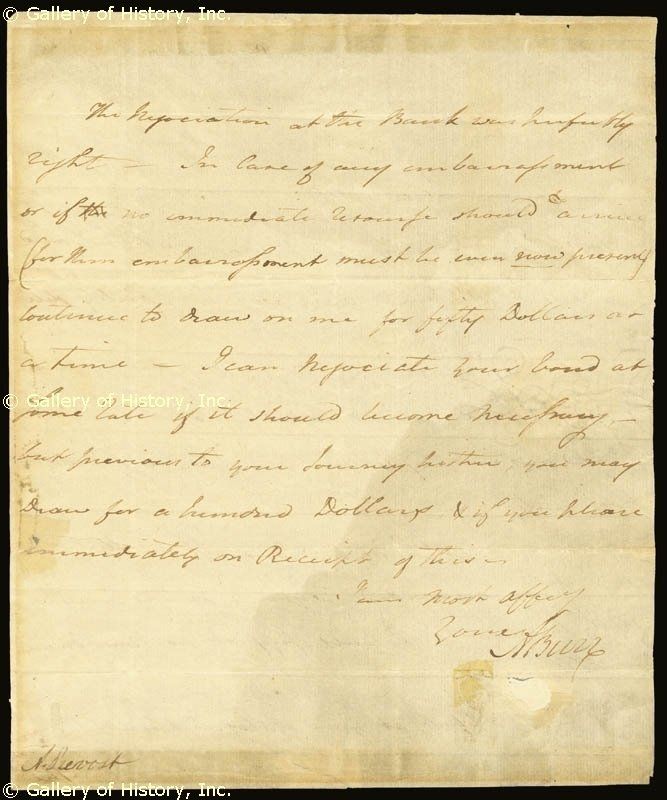 © Gallery of History, Inc.
The Negociation at the Bank was perfectly
right — In Case of any embarrassment
or if no immediate resource should arise
(for Him embarrassment must be even now present)
Continue to draw on me for fifty Dollars at
a time — I can Negociate your bond at
© Gallery of History, Inc.
some rate if it should become necessary —
but previous to your Journey hither, you may
Draw for a hundred Dollars & if you please
immediately on Receipt of this —
I am most affecy
Yours
A Burr
A. Prevost
© Gallery of History, Inc.